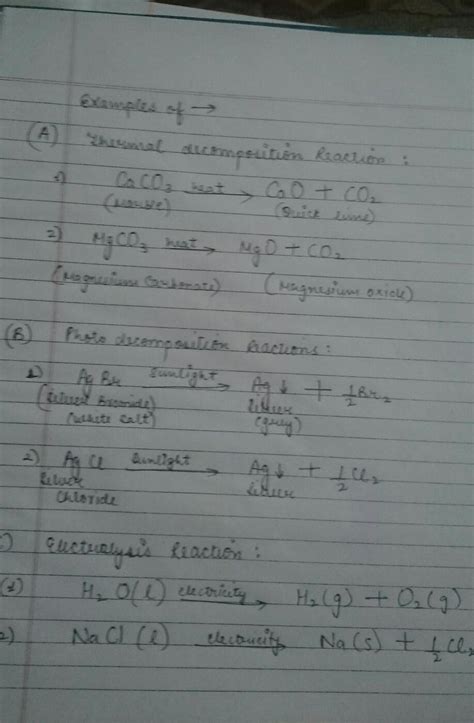 Examples of →
(A) Thermal decomposition Reaction :
1) CaCO3 heat → CaO + CO2
(Marble) (Quick lime)
2) MgCO3 heat → MgO + CO2
(Magnesium Carbonate) (Magnesium oxide)
(B) Photo decomposition Reactions :
1) AgBr Sunlight → Ag↓ + 1/2 Br2
(Silver Bromide) Silver
(White Salt) (grey)
2) AgCl Sunlight → Ag↓ + 1/2 Cl2
Silver Silver
Chloride
) Electrolysis Reaction :
(1) H2O(l) electricity → H2(g) + O2(g)
2) NaCl(l) electricity → Na(s) + 1/2 Cl2